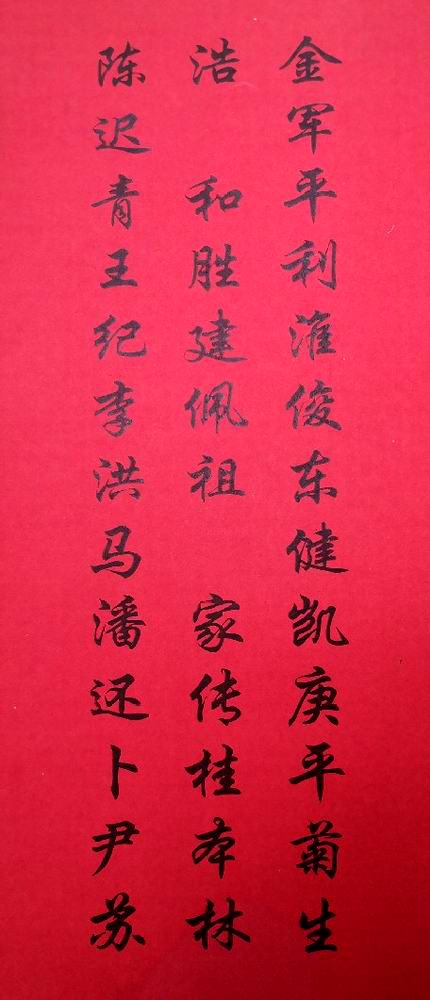 陈浩金
迟军
青和平
王胜利
纪建淮
李佩俊
洪祖东
马健
潘家凯
还传庚
卜桂平
尹本菊
苏林生